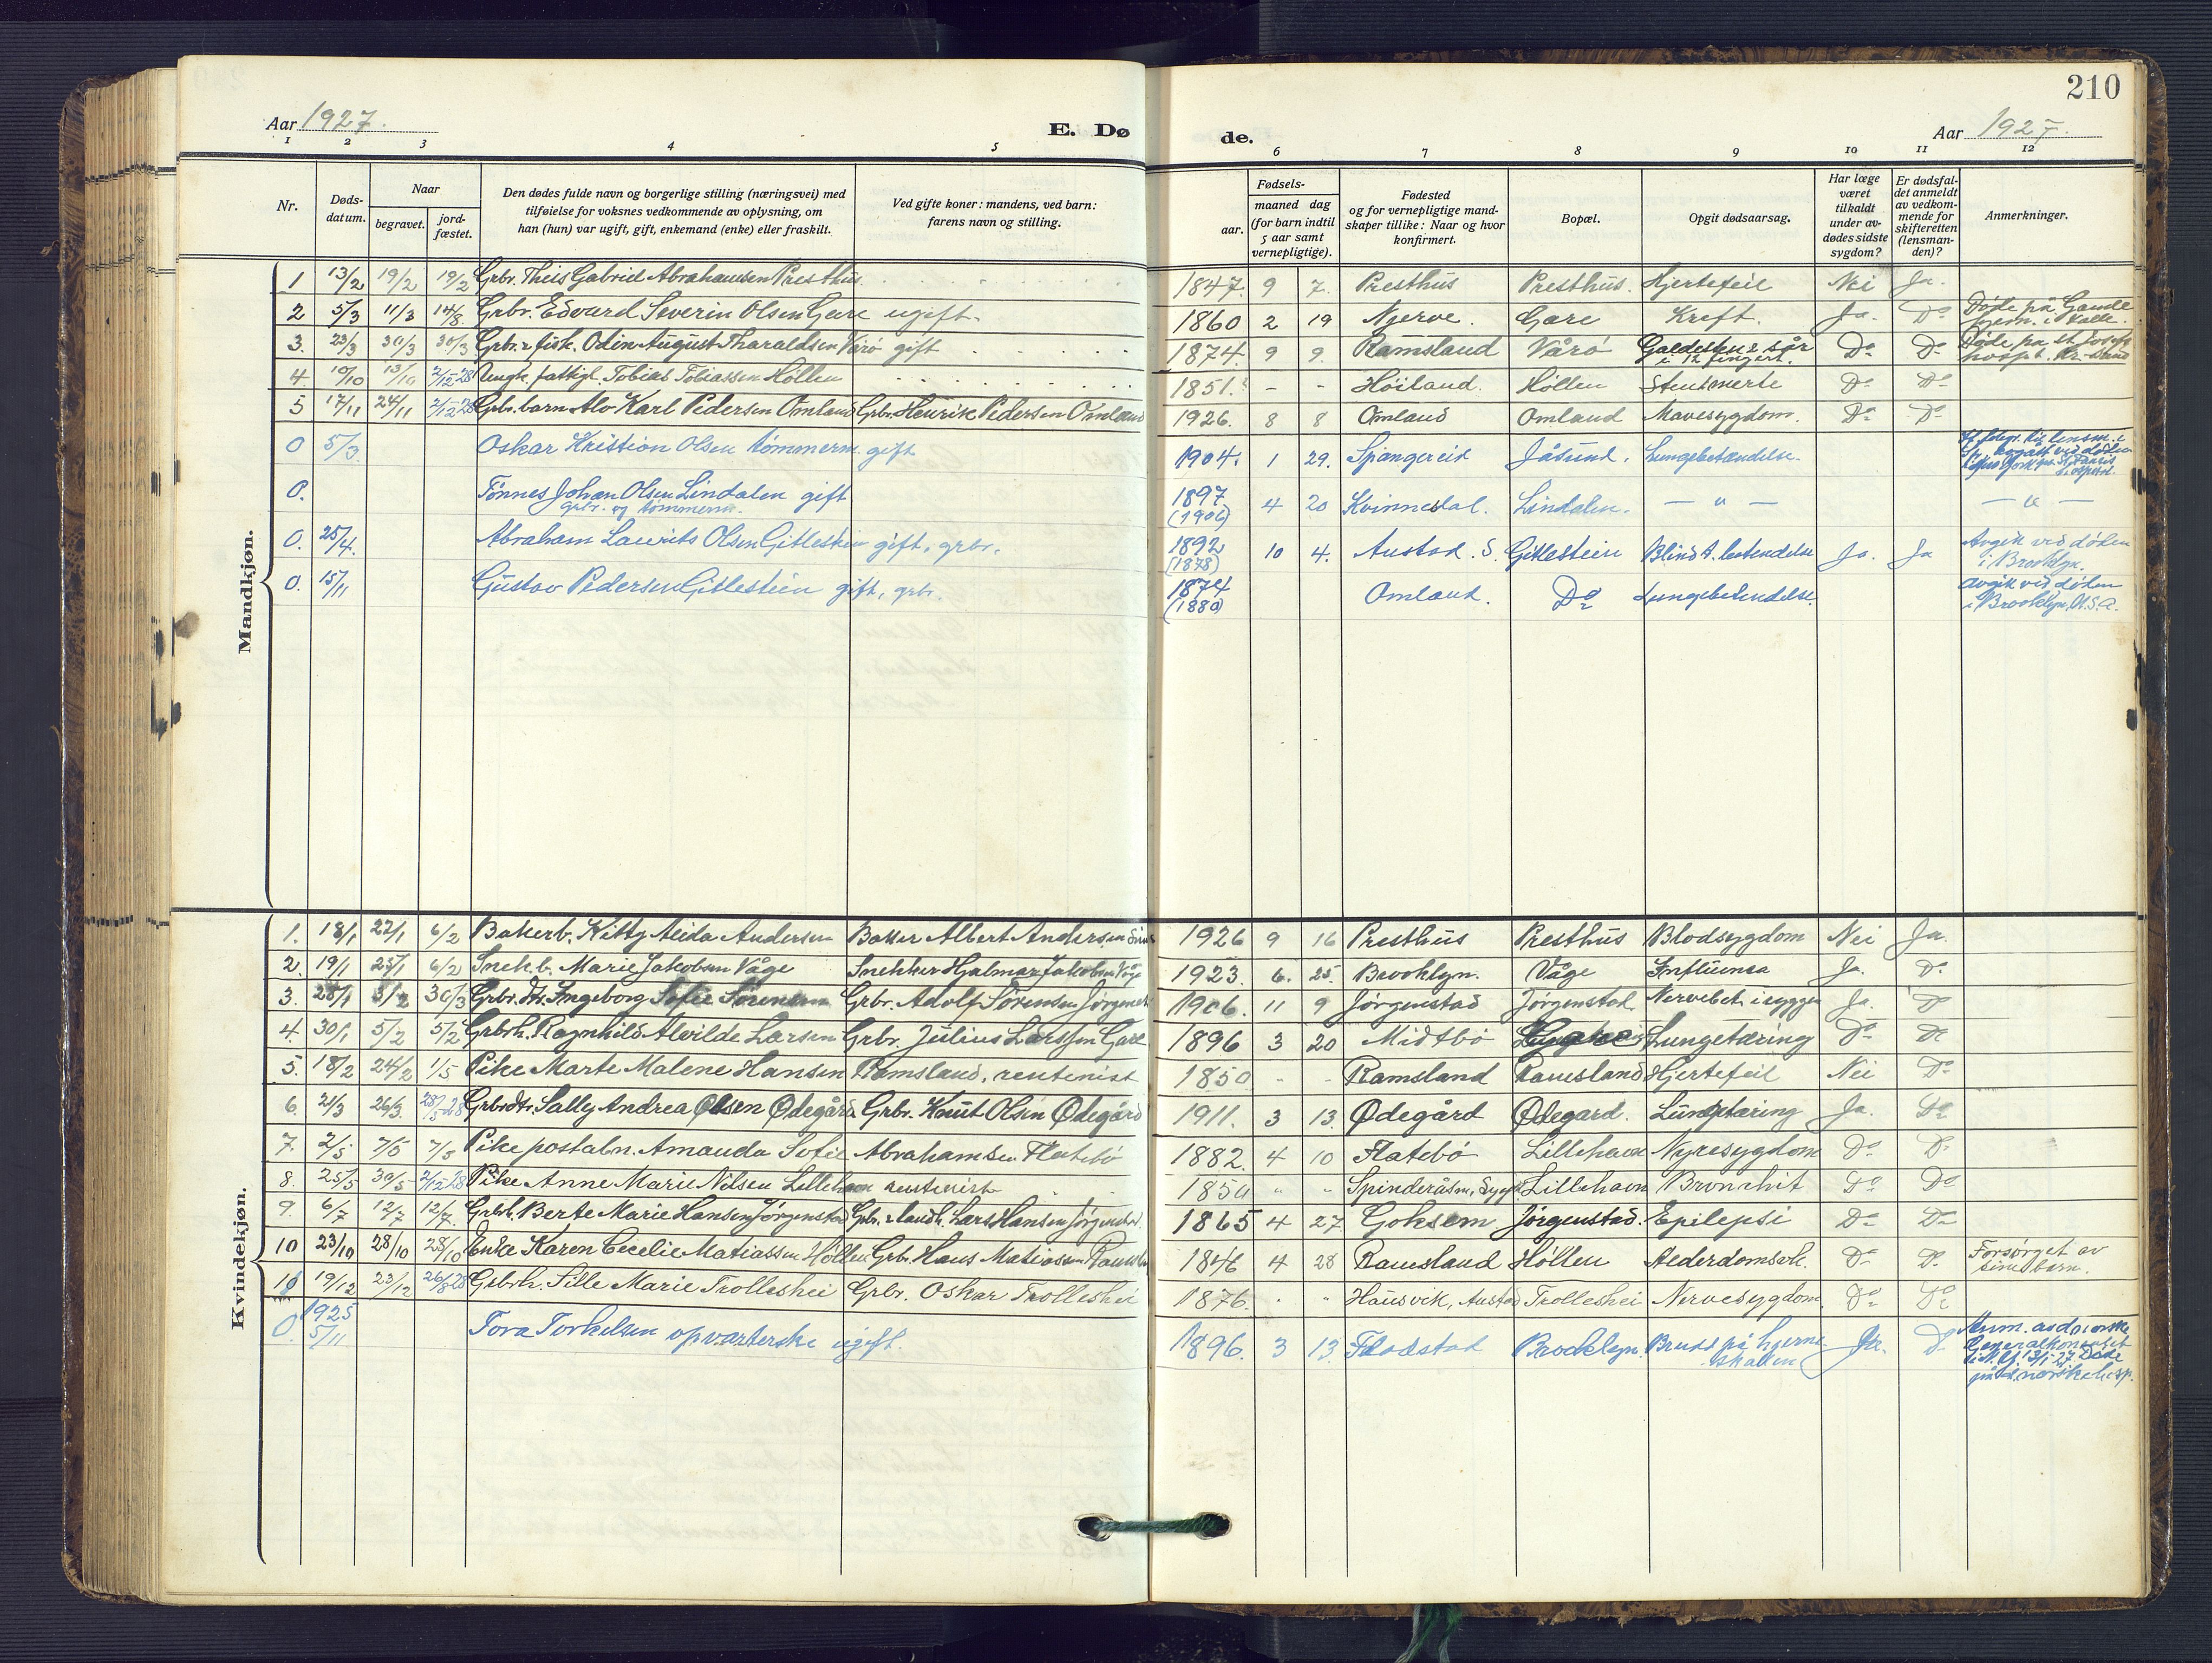 210
Aar 1927.
E. Dø
de.
Aar 1927.
1 2 3 4 5 6 7 8 9 10 11 12
Nr.
Døds-
datum.
Naar
begravet.
jord-
fæstet.
Den dødes fulde navn og borgerlige stilling (næringsvei) med
tilføielse for voksnes vedkommende av oplysning, om
han (hun) var ugift, gift, enkemand (enke) eller fraskilt.
Ved gifte koner: mandens, ved barn:
farens navn og stilling.
Fødsels-
aar.
maaned dag
(for barn indtil
5 aar samt
vernepligtige).
Fødested
og for vernepligtige mand-
skaper tillike: Naar og hvor
konfirmert.
Bopæl.
Opgit dødsaarsag.
Har læge
været
tilkaldt
under av-
dødes sidste
sygdom?
Er dødsfal-
det anmeldt
av vedkom-
mende for
skifteretten
(lensman-
den)?
Anmerkninger.
Mandkjøn.
1 13/2 19/2 19/2 Grbr. Theis Gabriel Abrahamsen Presthus 1847. 9 7. Presthus Presthus. Hjertefeil Nei Ja.
2 5/3 11/3 14/8 Grbr. Edvard Severin Olsen Gare ugift. 1860 2 19 Njerve. Gare Kreft. Ja. Do Døde på Gamle
hjem. i Valle.
3. 23/3 30/3 30/3 Grbr. & fisk. Odin August Tharaldsen Vårö gift 1874. 9 9. Ramsland Vårö Galdesten & sår
i 12 fingert. Do Do Døde på St. Josefs
hospt. Kr.-sand
4. 10/10 13/10 2/12-28 Ungk. fattigl. Tobias Tobiassen Höllen 1851. - - Höiland. Höllen Stensmerte Do Do
5 17/11 24/11 2/12-28 Grbr. barn Alv Karl Pedersen Omland Grbr. Henrik Pedersen Omland 1926. 8 8 Omland Omland Mavesygdom. Do Do
0 5/3 Oskar Kristian Olsen tömmerm. gift 1904. 1 29. Spangereid Jåsund. Lungebetændelse.
0. Tönnes Johan Olsen Lindalen gift
grbr. og tömmerm. 1897
(1906) 4 20 Kvinnesdal. Lindalen. — " — — " —
0. 25/4. Abraham Laurits Olsen Gitlestein gift, grbr. 1892
(1878) 10 4. Austad. S. Gitlestein Blindt. betendelse Ja. Ja Avgik ved døden
i Brooklyn.
0. 15/11 Gustav Pedersen Gitlestein gift, grbr. 1874
(1880) Omland. Do Lungebetendelse. avgik ved døden
i Brooklyn, U.S.A.
Kvindekjøn.
1. 18/1 22/1 6/2 Bakerb. Kitty Alida Andersen Baker Albert Andersen 1926 9 16 Presthus Presthus Blodsygdom Nei Ja.
2. 19/1 25/1 6/2 Snekb. Marie Jakobsen Våge Snekker Hjalmar Jakobsen Våge 1923. 6. 25. Brooklyn. Våge Influensa Ja. Do
3. 28/1 3/2 30/3 Grbr. dtr. Ingeborg Sofie Sørensen Grbr. Adolf Sørensen Jørgenstad 1906. 11 9 Jørgenstad Jørgenstad Nervebet. i ryggen Ja. Do
4. 30/1 5/2 5/2 Grbrh. Ragnhild Alvilde Larsen Grbr. Julius Larssen Gare 1896 3 20 Midtbö Lungetæring Do Do
5. 18/2 24/2 1/5 Pike Marte Malene Hansen Ramsland, rentenist 1850 - - Ramsland Ramsland Hjertefeil Nei Do
6. 21/3 26/3. 28/5-28 Grbrdtr. Sally Andrea Olsen Ødegård Grbr. Knut Olsen Ødegård 1911. 3 13. Ødegård Ødegard. Lungetæring Ja. Do
7. 2/5 7/5 7/5 Pike postabn. Amanda Sofie Abrahamsen Flatebö 1882. 4 10 Flatebö Lillehavn Nyresygdom Do Do
8. 25/5 30/5 2/12-28 Pike Anne Marie Nilsen Lillehavn rentenist 1850 " " Spinderåsen, Lillehavn Bronchit Do Do
9. 6/7 12/7 12/7. Grbrh. Berte Marie Hansen Jørgenstad Grbr. & landh. Lars Hansen Jørgenstad. 1865 4 27. Goksem Jørgenstad. Epilepsi Do Do
10 23/10 28/10 28/10 Enke Karen Cecelie Matiassen Höllen Grbr. Hans Matiassen Ramsland 1846 4 28 Ramsland Höllen Alderdomsvk. Do Do Forsørget av
sine barn.
11 19/12 23/12 26/8 28 Grbrh. Sille Marie Trolleshei Grbr. Oskar Trolleshei 1876. " " Hausvik, Austad Trolleshei Nervesygdom Do Do
0. 1925
5/11 Tora Torkelsen opvarterske ugift. 1896. 3 13. Fladstad Brooklyn. Brudd på hjerne-
skallen Ja. Do